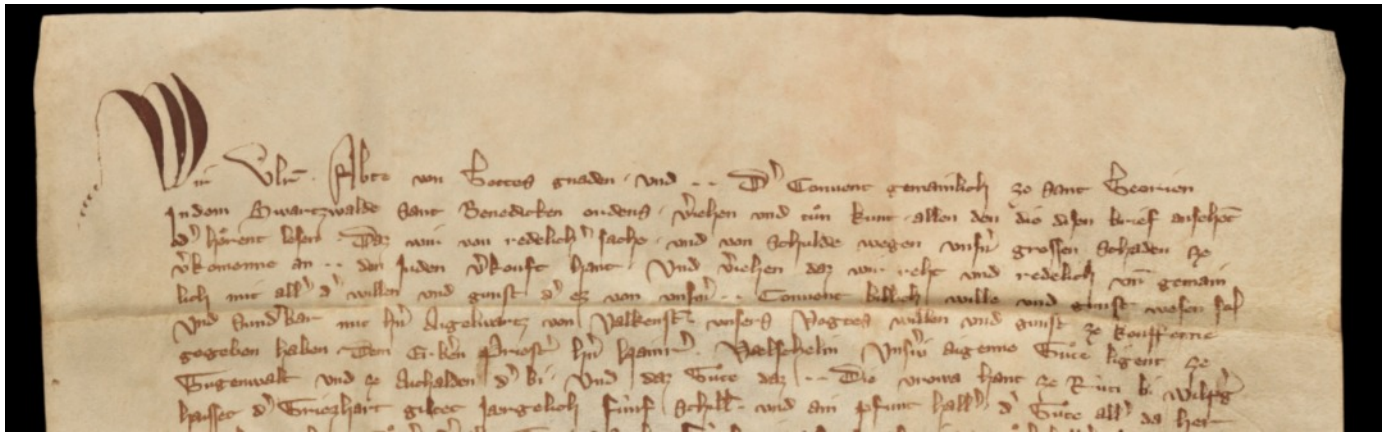 Wir Ulr̄. Abte von Gottes gnaden. vnd .. Dˢ Convent gemainlich ze Sant Georien
Indem Swartzwalde Sant Benedicten ordens. vˢiehen vnd tuͦn kunt. allen den die disen brief ansehēt
odˢ hoͤrent lesen. Daz wir von redelichˢ sache. vnd von Schulde wegen vnsˢn grossen Schaden ze
vˢkomenne an .. den Juden vˢkouft hant. Vnd vˢiehen daz wir reht vnd redelich vn̄ gemain
lich mit allˢ dˢ willen vnd gunst dˢ ez von vnsˢm .. Convent billich wille vnd gunst wesen sol
Vnd Sundˢbar mit hˢn Aigelwartz von Valkenst̄. vnsers Vogtes willen vnd gunst ze kouffenne
gegeben haben Dem Erbˢen Priestˢ hˢn hainrˢ. Vnsˢiv aigenne Guͤte ligent ze
Gugenwalt vnd ze Aichalden dˢ bi. Vnd daz Guͤte daz .. Die vrowa hant ze Ruͤti bi
haisset dˢ Griezhart giltet Jaergelich fuͤnf Schill̄. vnd ain pfunt hallˢ. dˢ Guͤte allˢ da her